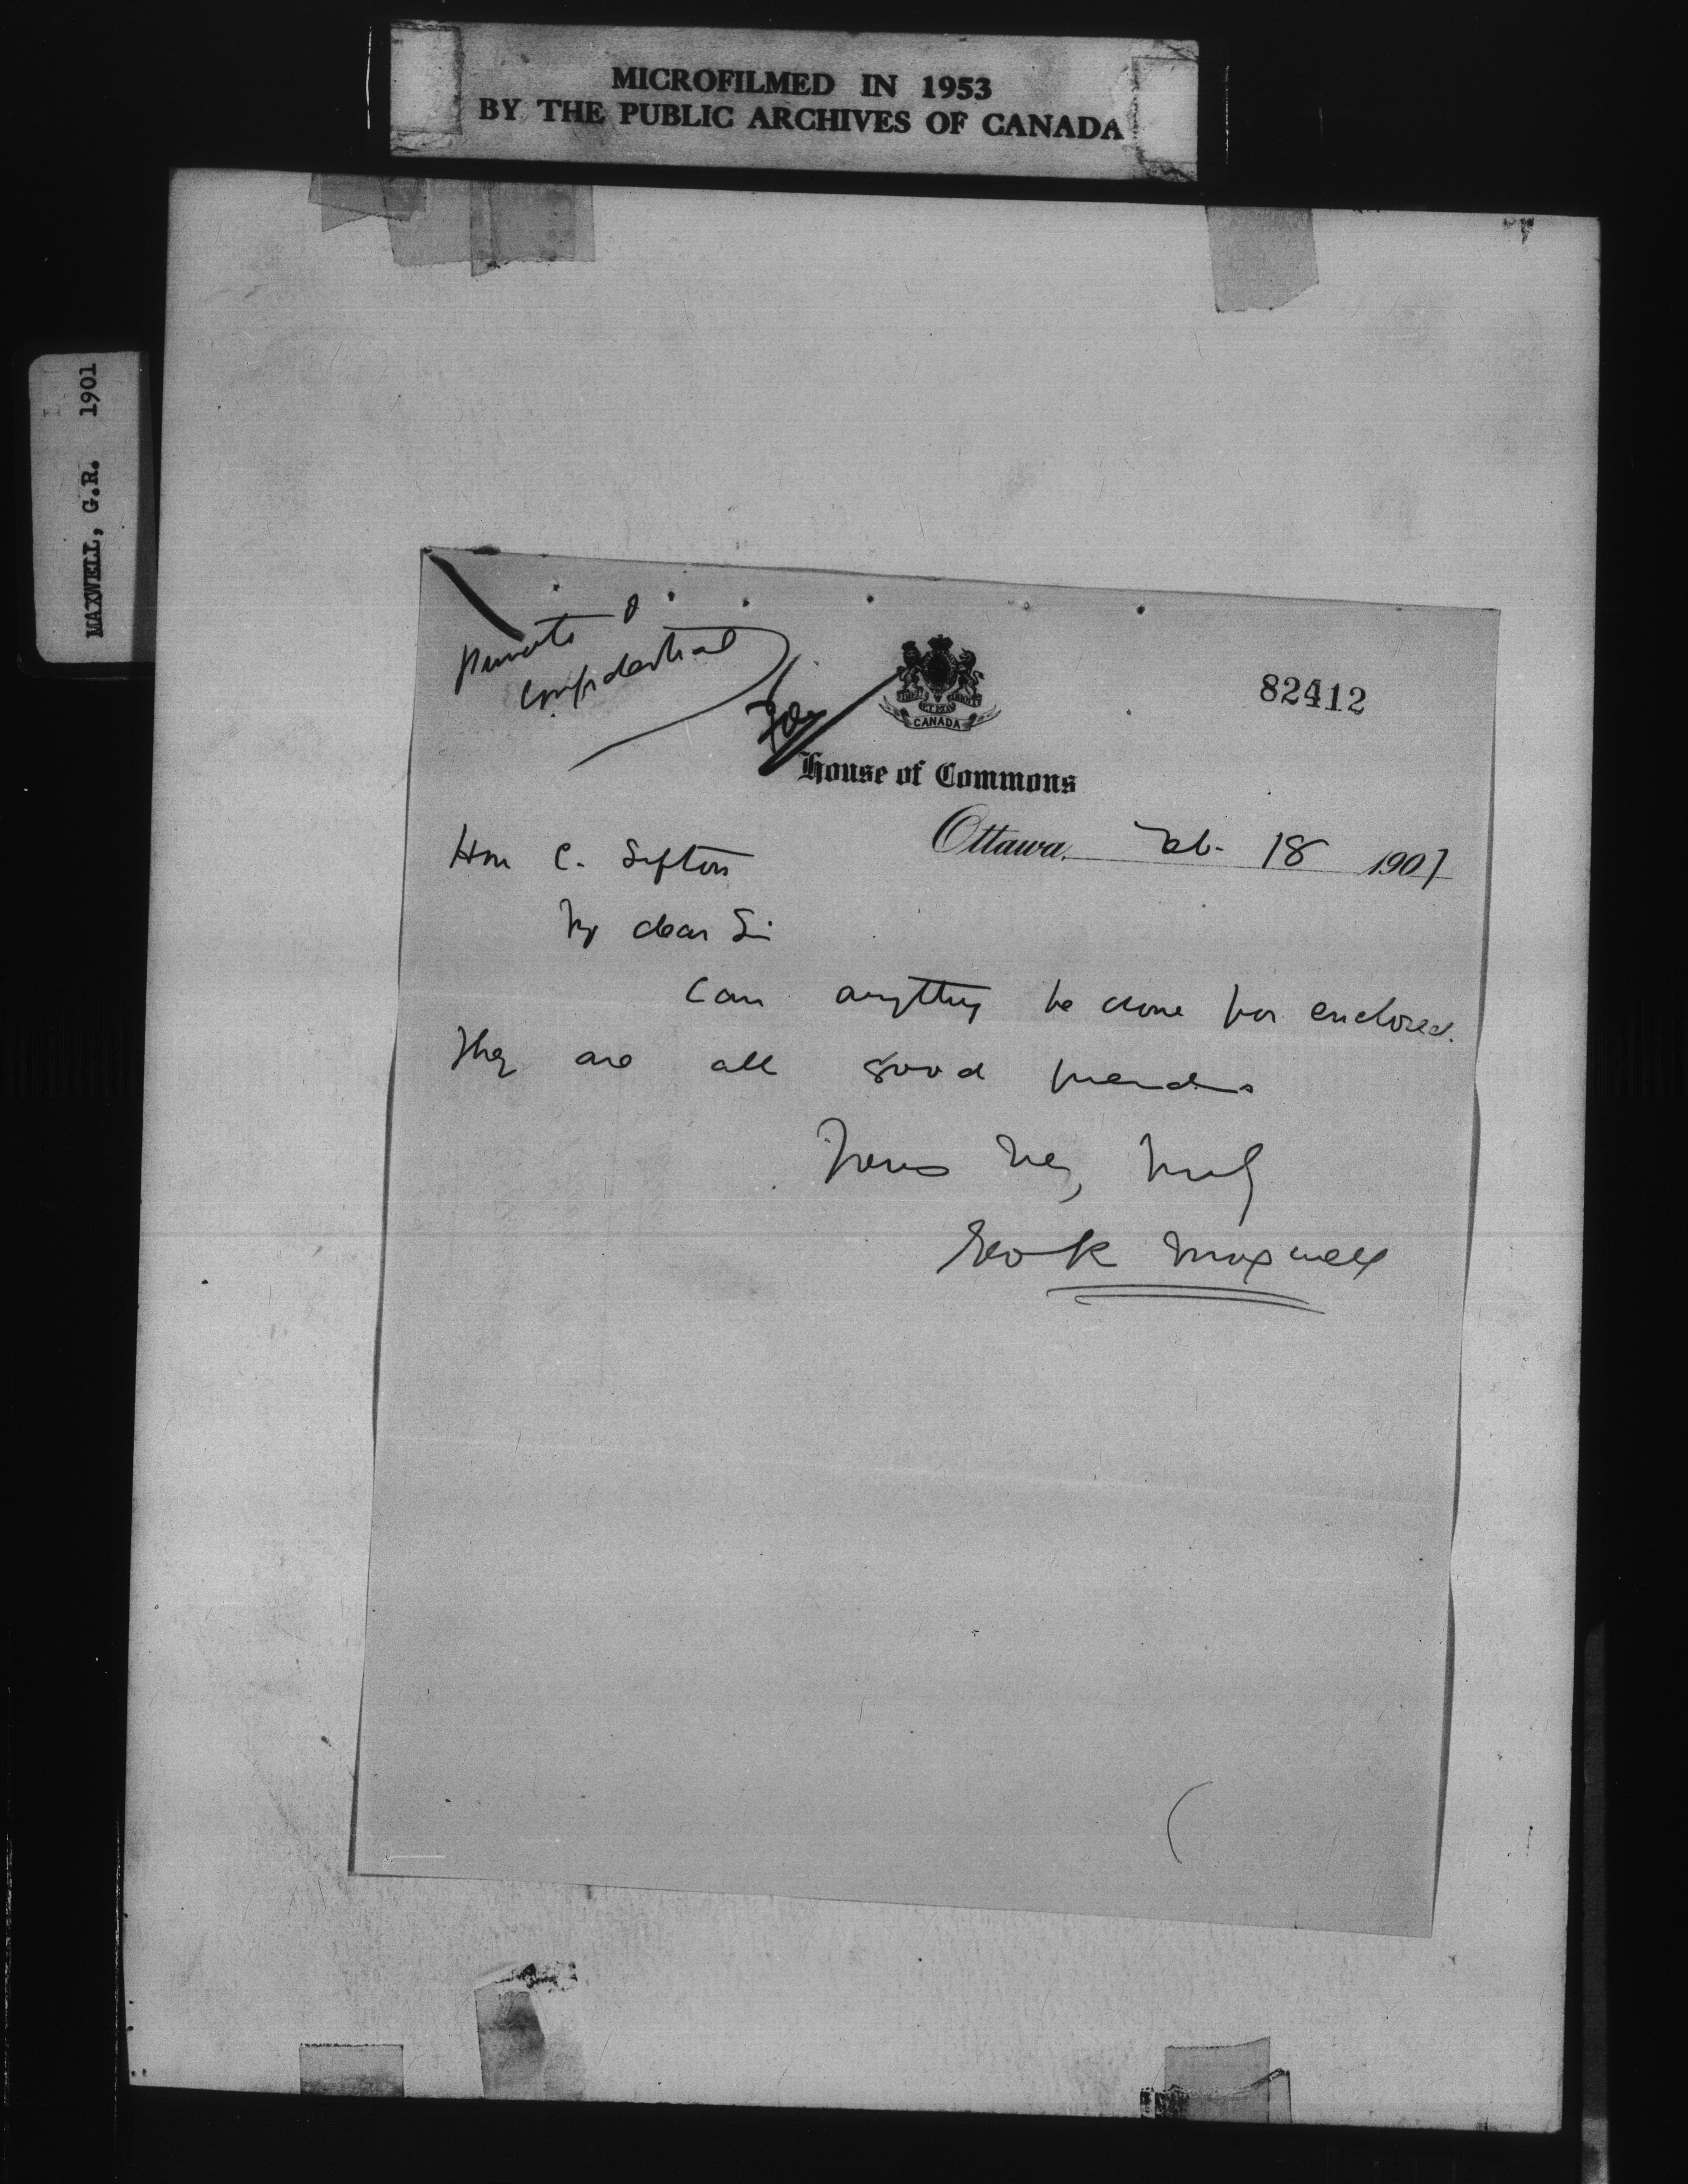 MICROFILMED IN 1953
BY THE PUBLIC ARCHIVES OF CANADA
MAXWELL, G.R. 1901
Private &
Confidential
82412
CANADA
House of Commons
Ottawa, Feb. 18 1901
Hon C. Sifton
My dear Sir
Can anything be done for enclosed.
They are all good friends
Yours very truly
Geo R Maxwell